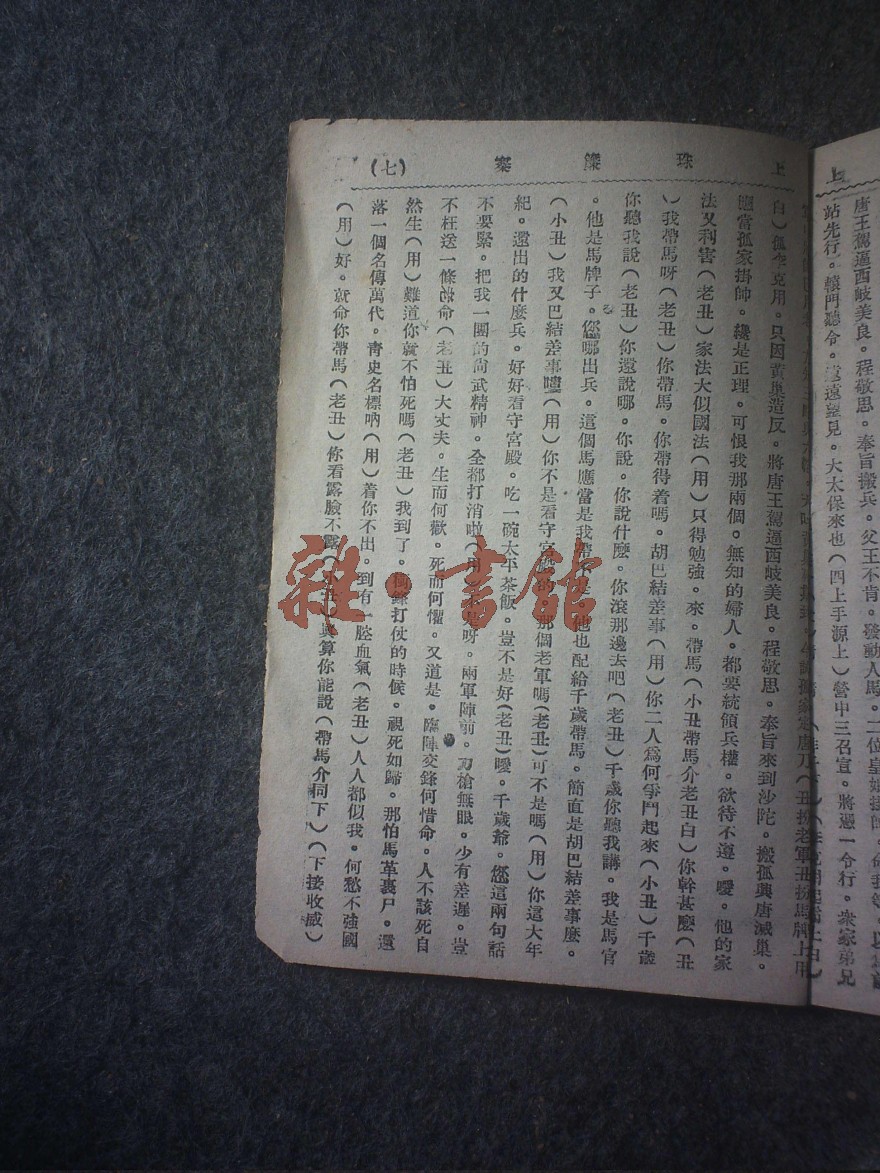 上
唐王駕逼西岐美良。程敬思。奉旨搬兵。父王不肯。發動人馬。二位皇娘掛帥。命我等。以為前
站先行。轅門聽令。遠遠望見。大太保來也（四上手源上）營中三召宣。將憑一令行。衆家弟兄
上 珠簾寨 （七）
（丑扮老軍丑扮馬牌上用
白）孤李克用。只因黃巢造反。將唐王駕逼西岐美良。程敬思。奉旨來到沙陀。搬孤興唐滅巢。
應當孤家掛帥。纔是正理。可恨我那兩個。無知的婦人。都要統領兵權。欲待不遵。噯。他的家
法又利害（老丑）家法大似國法（用）只得勉強。來。帶馬（小丑帶馬介老丑白）你幹甚麼（丑
）我帶馬呀（老丑）你帶馬。你帶得着嗎。胡巴結差事（用）你二人爲何爭鬥起來（小丑）千歲
你聽我說（老丑）你還說哪。你說。你說什麼。你滾那邊去吧（老丑）千歲你聽我講。我是馬官
。他是馬牌子。您哪出兵。這個馬應當是我帶不是。他也配給千歲帶馬。簡直是胡巴結差事麼。
（小丑）我又巴結差事嘍（用）你不是看守宮殿的。那個老軍嗎（老丑）可不是嗎（用）你這大年
紀。還出的什麼兵。好好看守宮殿。吃一碗太平茶飯。豈不是好（老丑）噯。千歲爺。您這兩句話
不要緊。把我一團的尚武精神。全都打消啦（用）不是呀。兩軍陣前。刀槍無眼。少有差遲。豈
不枉送一條命（老丑）大丈夫。生而何歡。死而何懼。又道是。臨陣交鋒何惜命。人不該死自
然生（用）難道你就不怕死嗎（老丑）我到了。衝鋒打仗的時候。視死如歸。那怕馬革裹尸。還
落一個名傳萬代。靑史名標吶（用）着你不出。到有一腔血氣（老丑）人人都似我。何愁不強國
（用）好。就命你帶馬（老丑）你看露臉不露（小丑）眞算你能說（帶馬介同下）（下接收威）
雜·書館